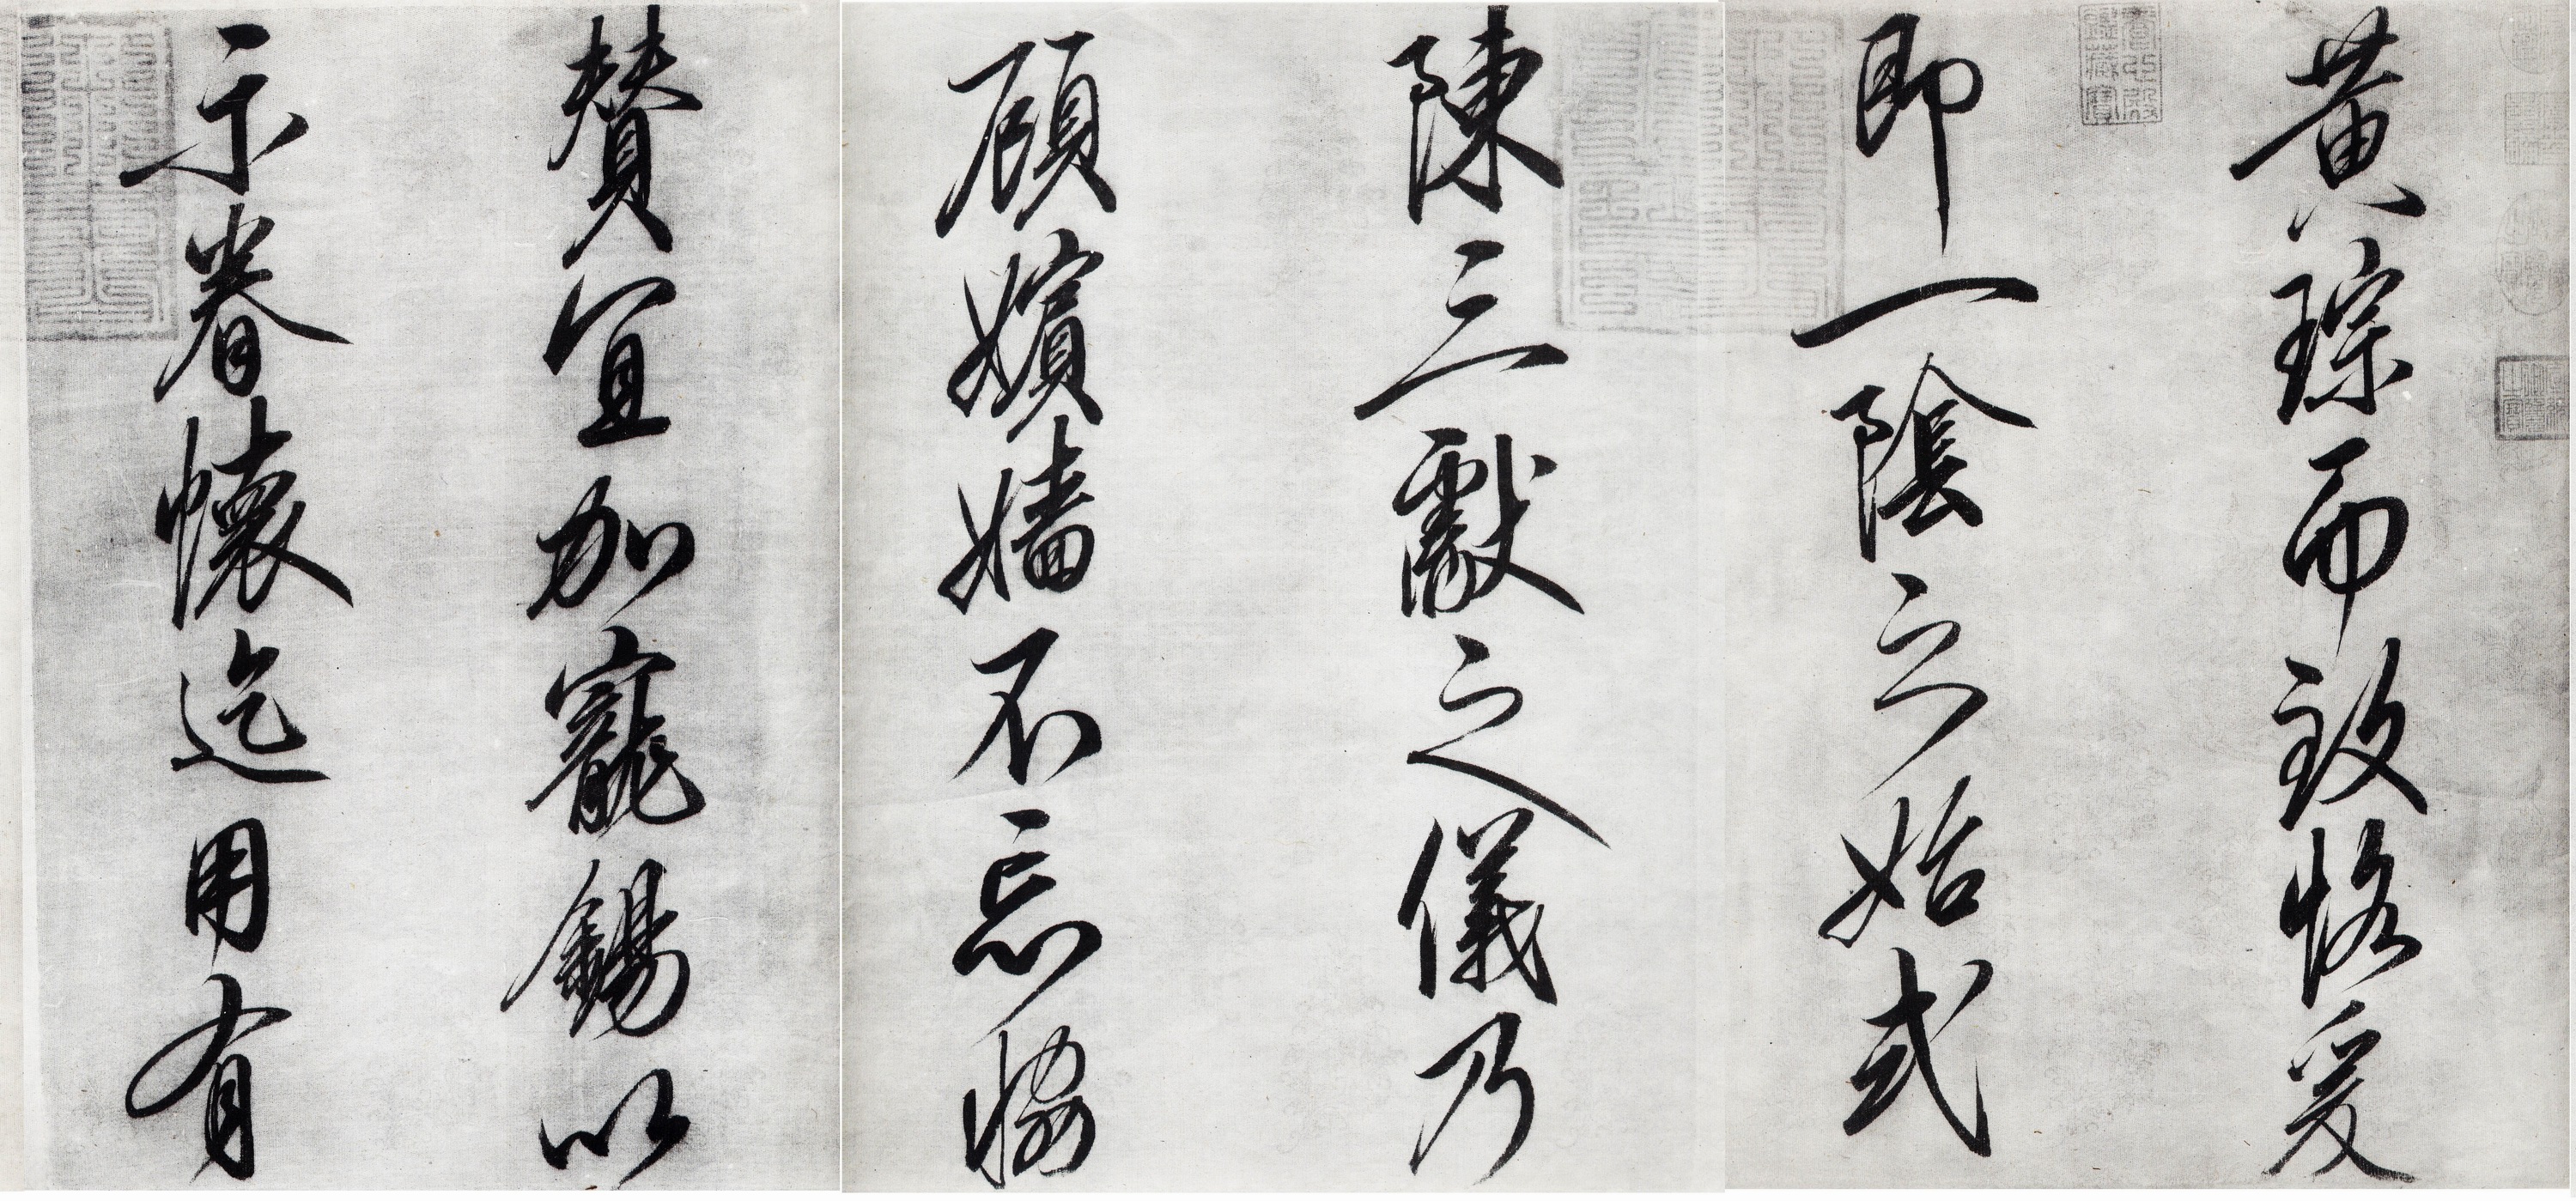 黄琮而致恪爰
即一陰之始式
陳三獻之儀乃
顧嬪嬙不忘協
賛宜加寵錫以
示眷懷迄用有